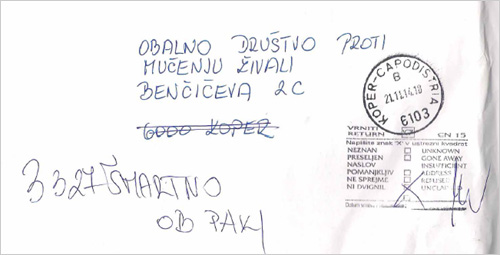 OBALNO DRUŠTVO PROTI
MUČENJU ŽIVALI
BENČIČEVA 2C
6000 KOPER
3327 ŠMARTNO
OB PAKI
KOPER-CAPODISTRIA
B
6103
VRNITI
RETURN CN 15
Napišite znak 'X' v ustrezni kvadrat
NEZNAN UNKNOWN
PRESELJEN GONE AWAY
NASLOV INSUFFICIENT
POMANJKLJIV ADDRESS
NE SPREJME REFUSED
NI DVIGNIL